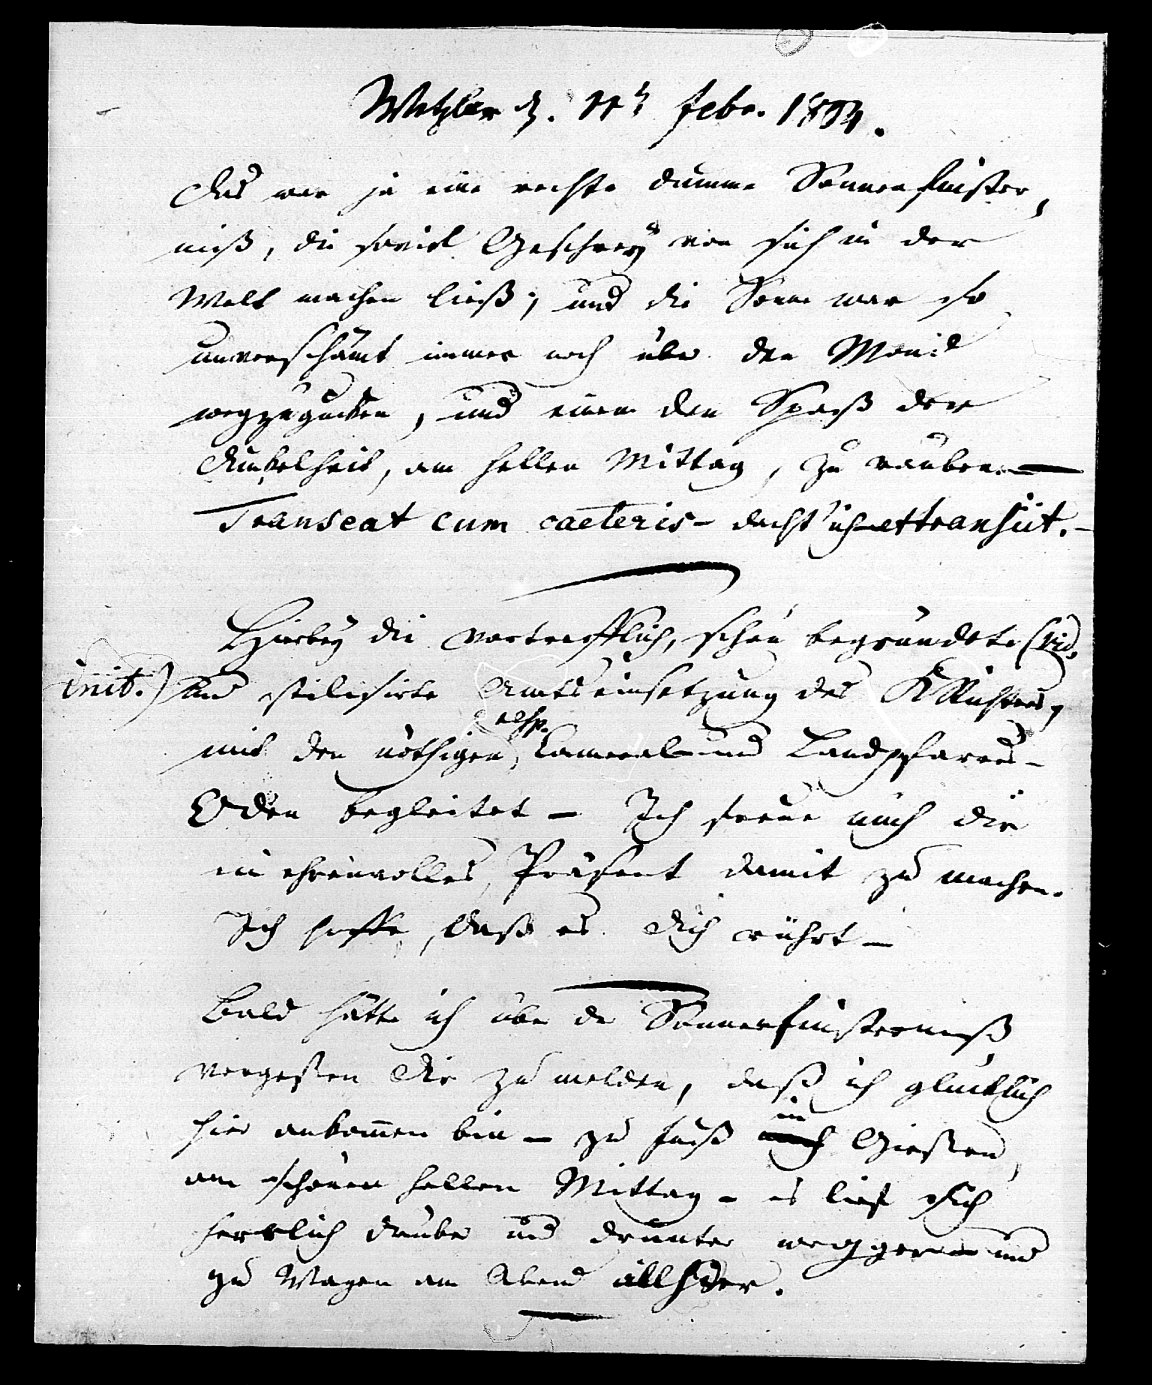 Wetzlar d. 11t Febr. 1804.
Das war ja eine rechte dumme Sonnenfinster,
niß, die soviel Geschrey von sich in der
Welt machen ließ; und die Sonne war so
unverschämt immer noch über den Mond
wegzugucken, und einem den Spaß der
Dunkelheit, am hellen Mittag, zu rauben —
Transeat cum caeteris – dacht' ich – et transiit. –
Hierbey die vortrefflich, schön begründete (vid.
init.) und stilisirte Amtseinsetzung des
resp.
mit den nöthigen, Cameral- und Landpfarrers-
Oden begleitet – Ich freue mich dir
ein ehrenvolles Präsent damit zu machen.
Ich hoffe, daß es Dich rührt –
Bald hätte ich über der Sonnenfinsterniß
vergeßen Dir zu melden, daß ich glücklich
in
hier ankommen bin – zu Fuß nach Gießen,
am schönen hellen Mittag – es lief sich
herrlich drüber und drunter weg – und
zu Wagen am Abend allhier.